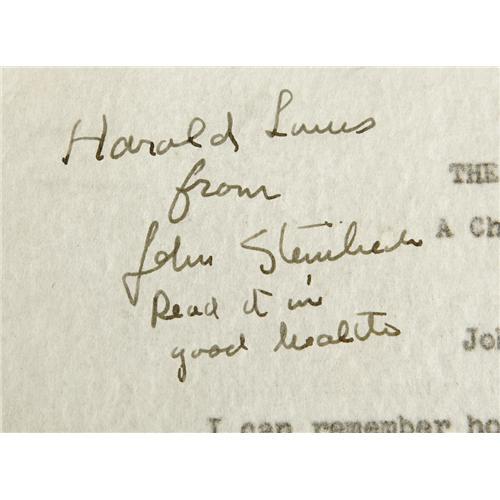 Harold Louis
from
John Steinbeck
Read it in
good health
THE
A Ch
Jo
I can remember ho